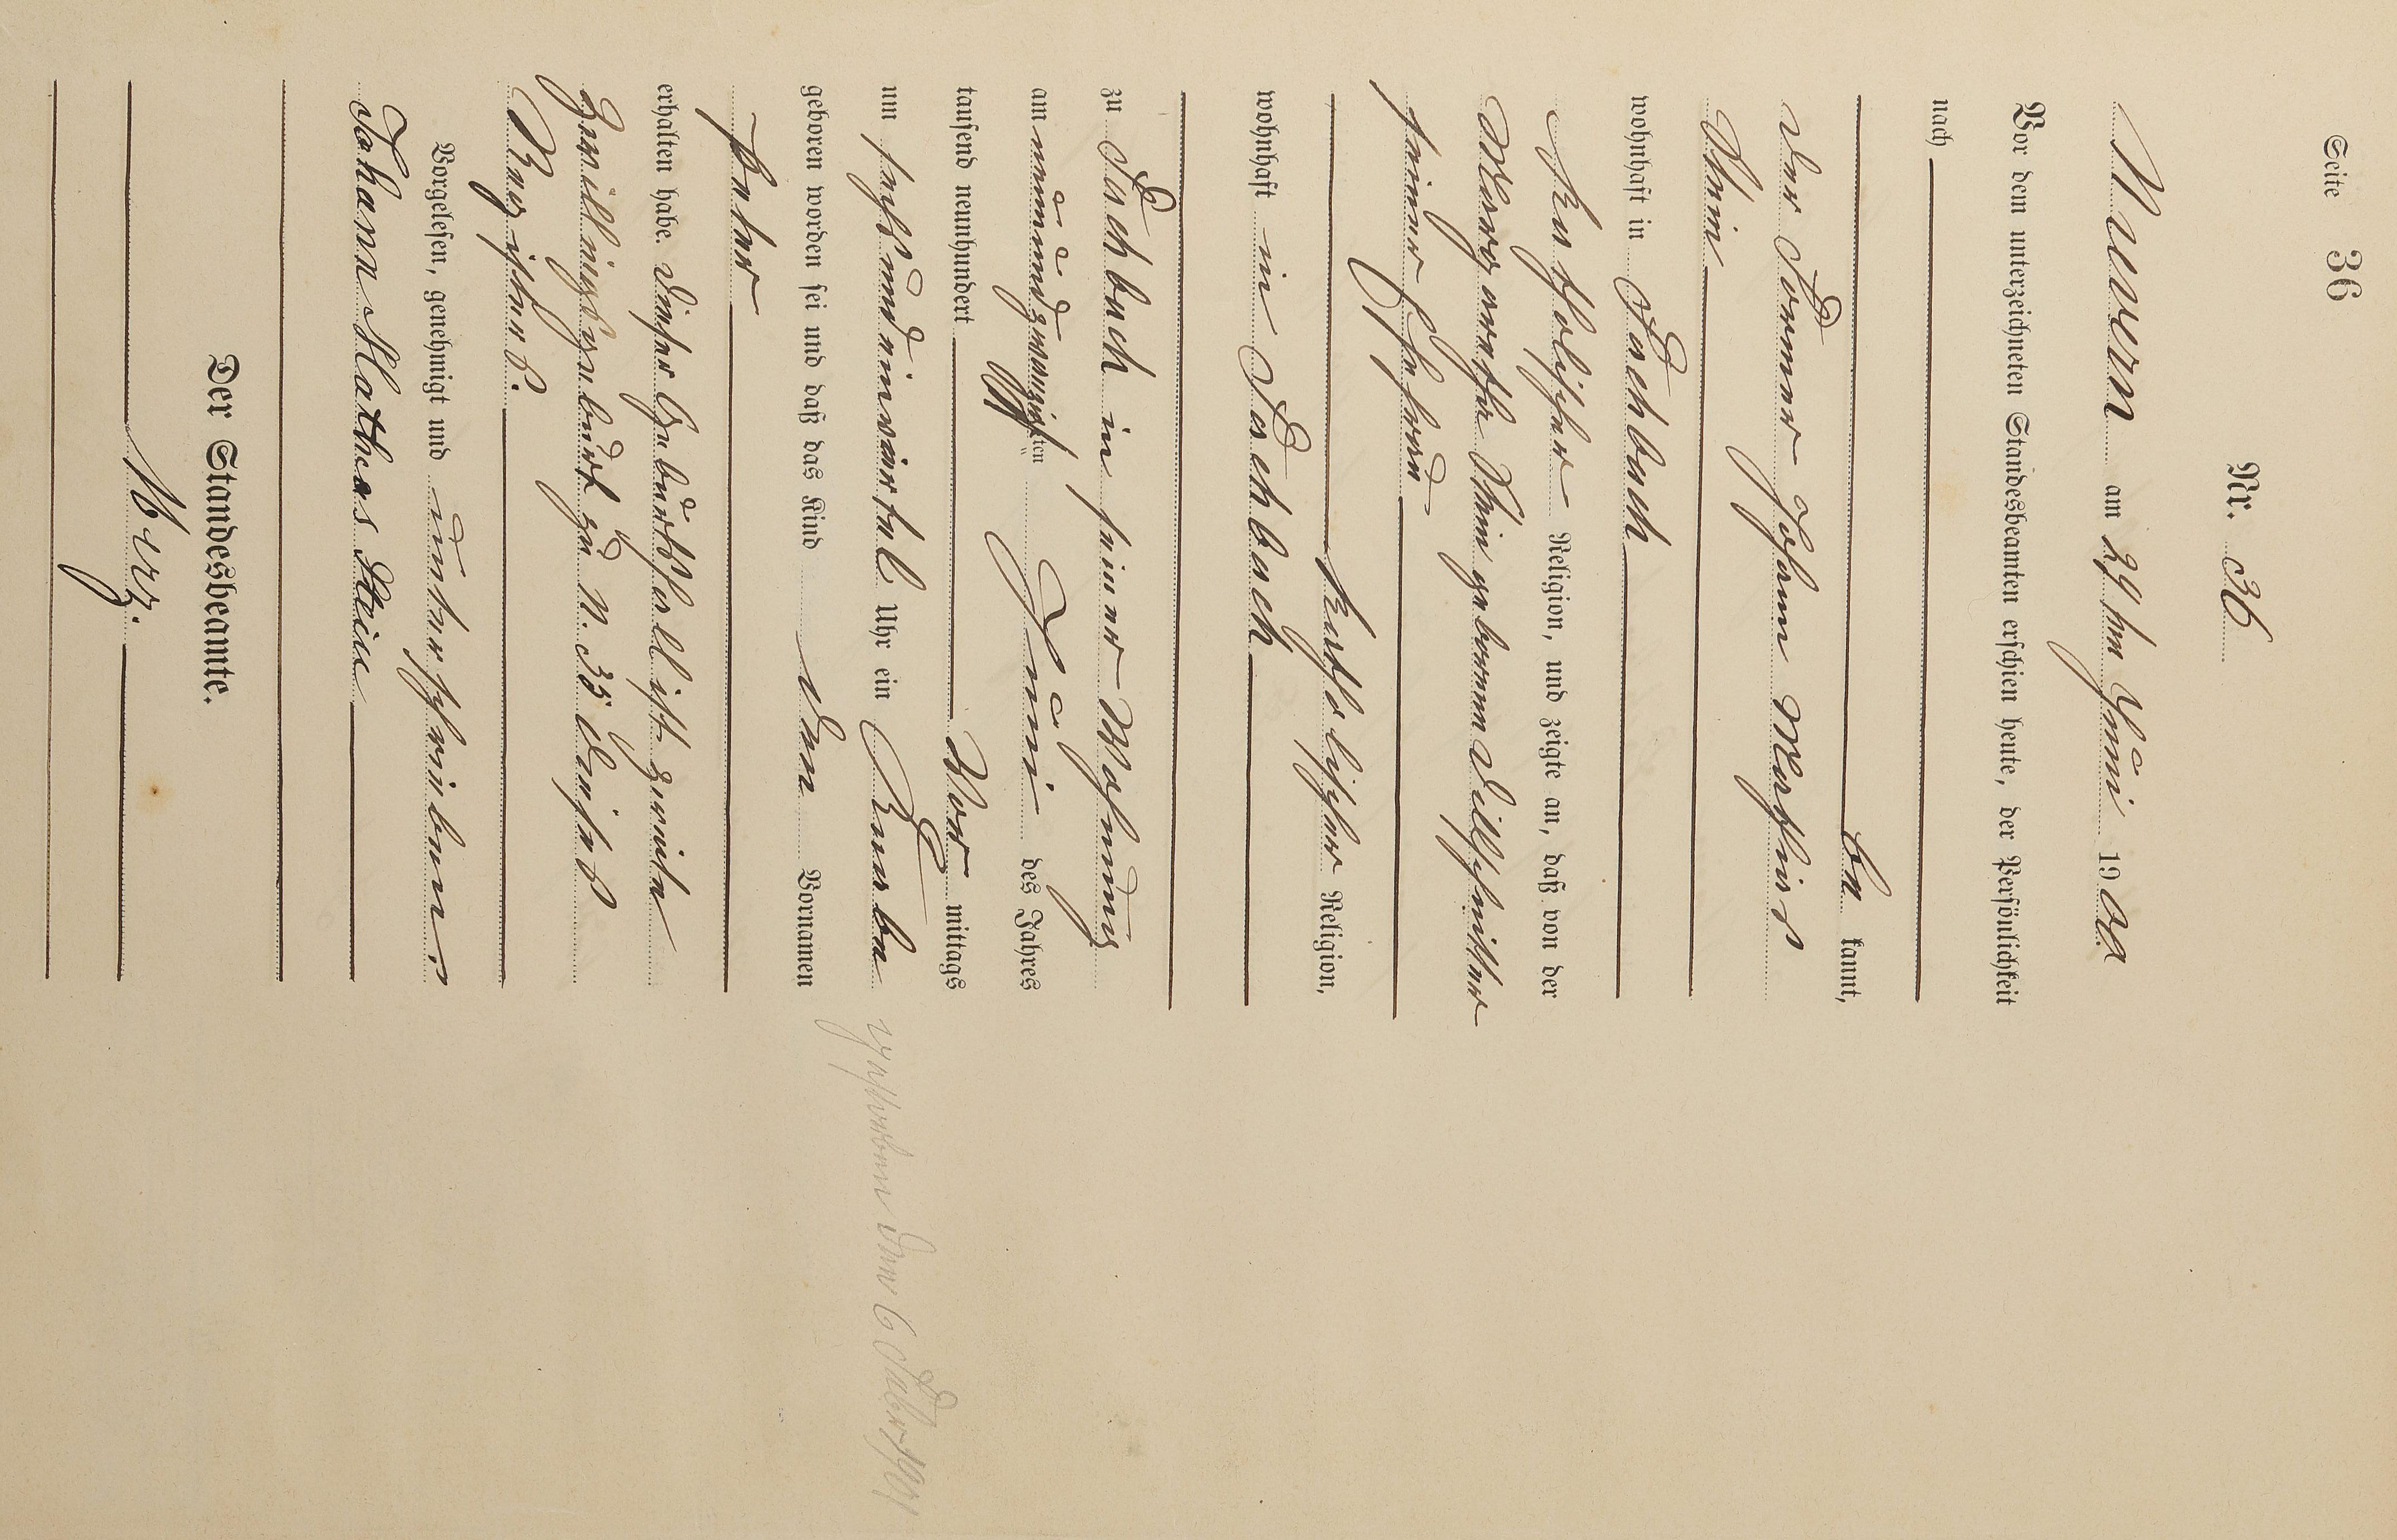 Seite 36
Nr. 36
am 29ten Juni 1900
Vor dem unterzeichneten Standesbeamten erschien heute, der Persönlichkeit
nach
be kannt,
der Former Johann Mathias
Klein
wohnhaft in Fachbach
katholischer Religion, und zeigte an, daß von der
Margaretha Klein geborenen Dillschnitter
seiner Ehefrau
katholischer Religion,
wohnhaft in Fachbach
zu Fachbach in seiner Wohnung
am neunundzwanzigsten Juni des Jahres
tausend neunhundert Vor mittags
um sechs und einviertel Uhr ein Knabe
geboren worden sei und daß das Kind den Vornamen
Peter
erhalten habe. Dieser Geburtsfall ist zweite
Zwillingsgeburt zu N. 35 dieses
Registers.
Vorgelesen, genehmigt und unterschrieben:
Johann Mathias Klein
Der Standesbeamte.
gestorben den 6 Febr 1901